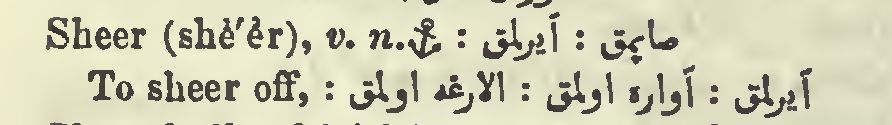 Sheer (shè′ėr), v. n.⚓ : صاپمق : آيرلمق
To sheer off, : آيرلمق : آواره اولمق : الارغه اولمق